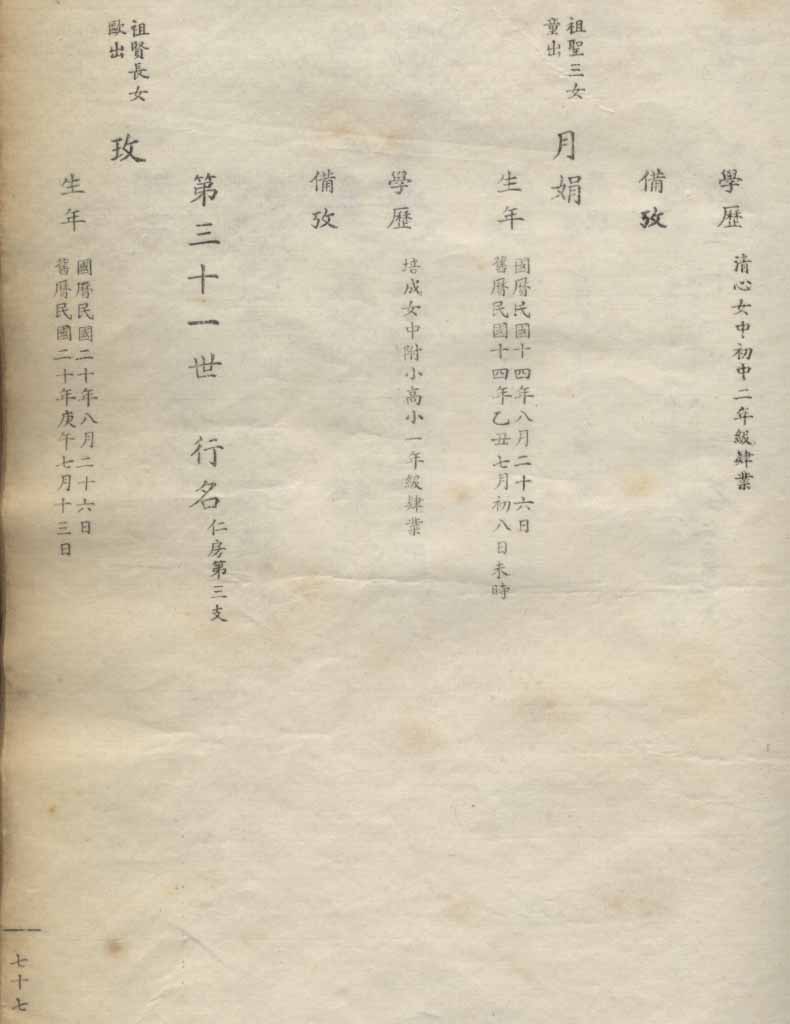 學歷
清心女中初中二年級肄業
備攷
祖聖三女
童出
月娟
生年
國曆民國十四年八月二十六日
舊曆民國十四年乙丑七月初八日未時
學歷
培成女中附小高小一年級肄業
備攷
第三十一世 行名
仁房第三支
祖賢長女
歐出
玫
生年
國曆民國二十年八月二十六日
舊曆民國二十年庚午七月十三日
七十七